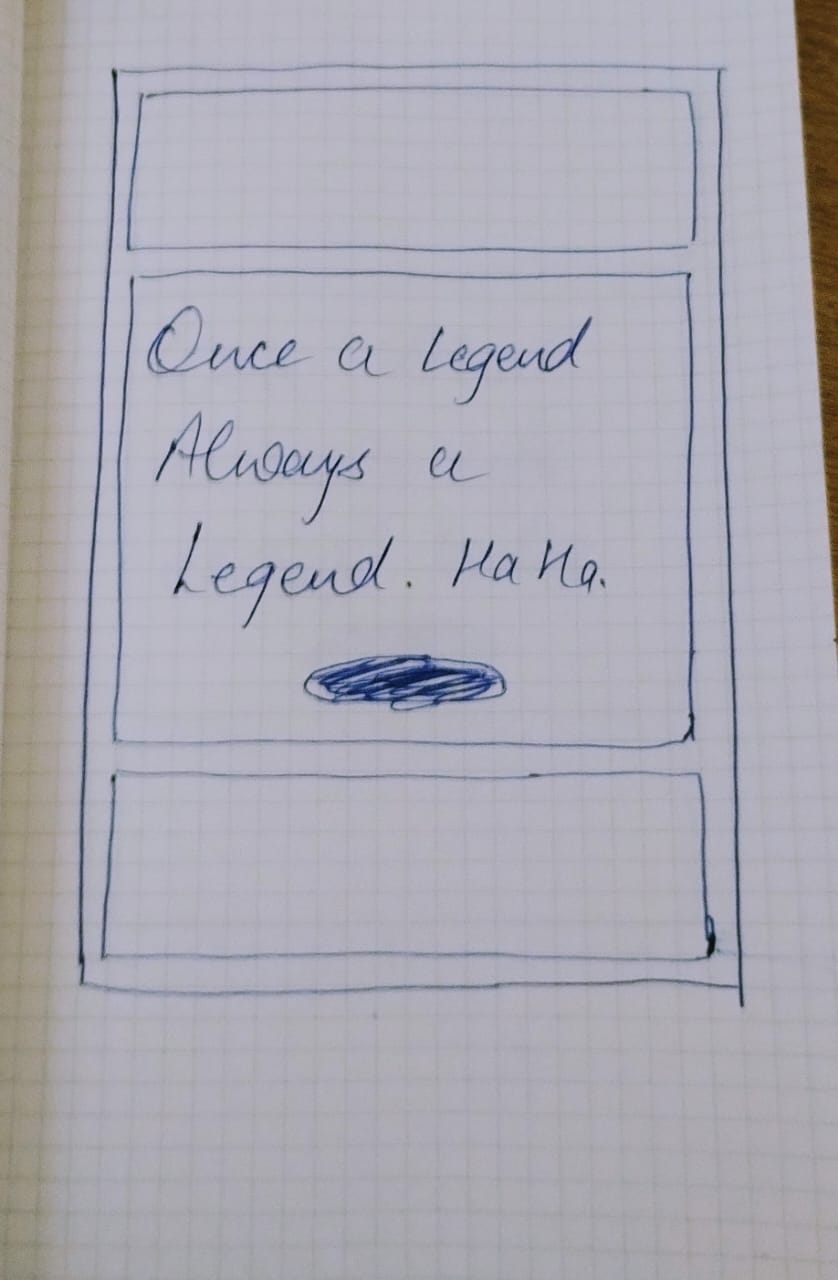 Once a Legend
Always a
Legend. Ha Ha.